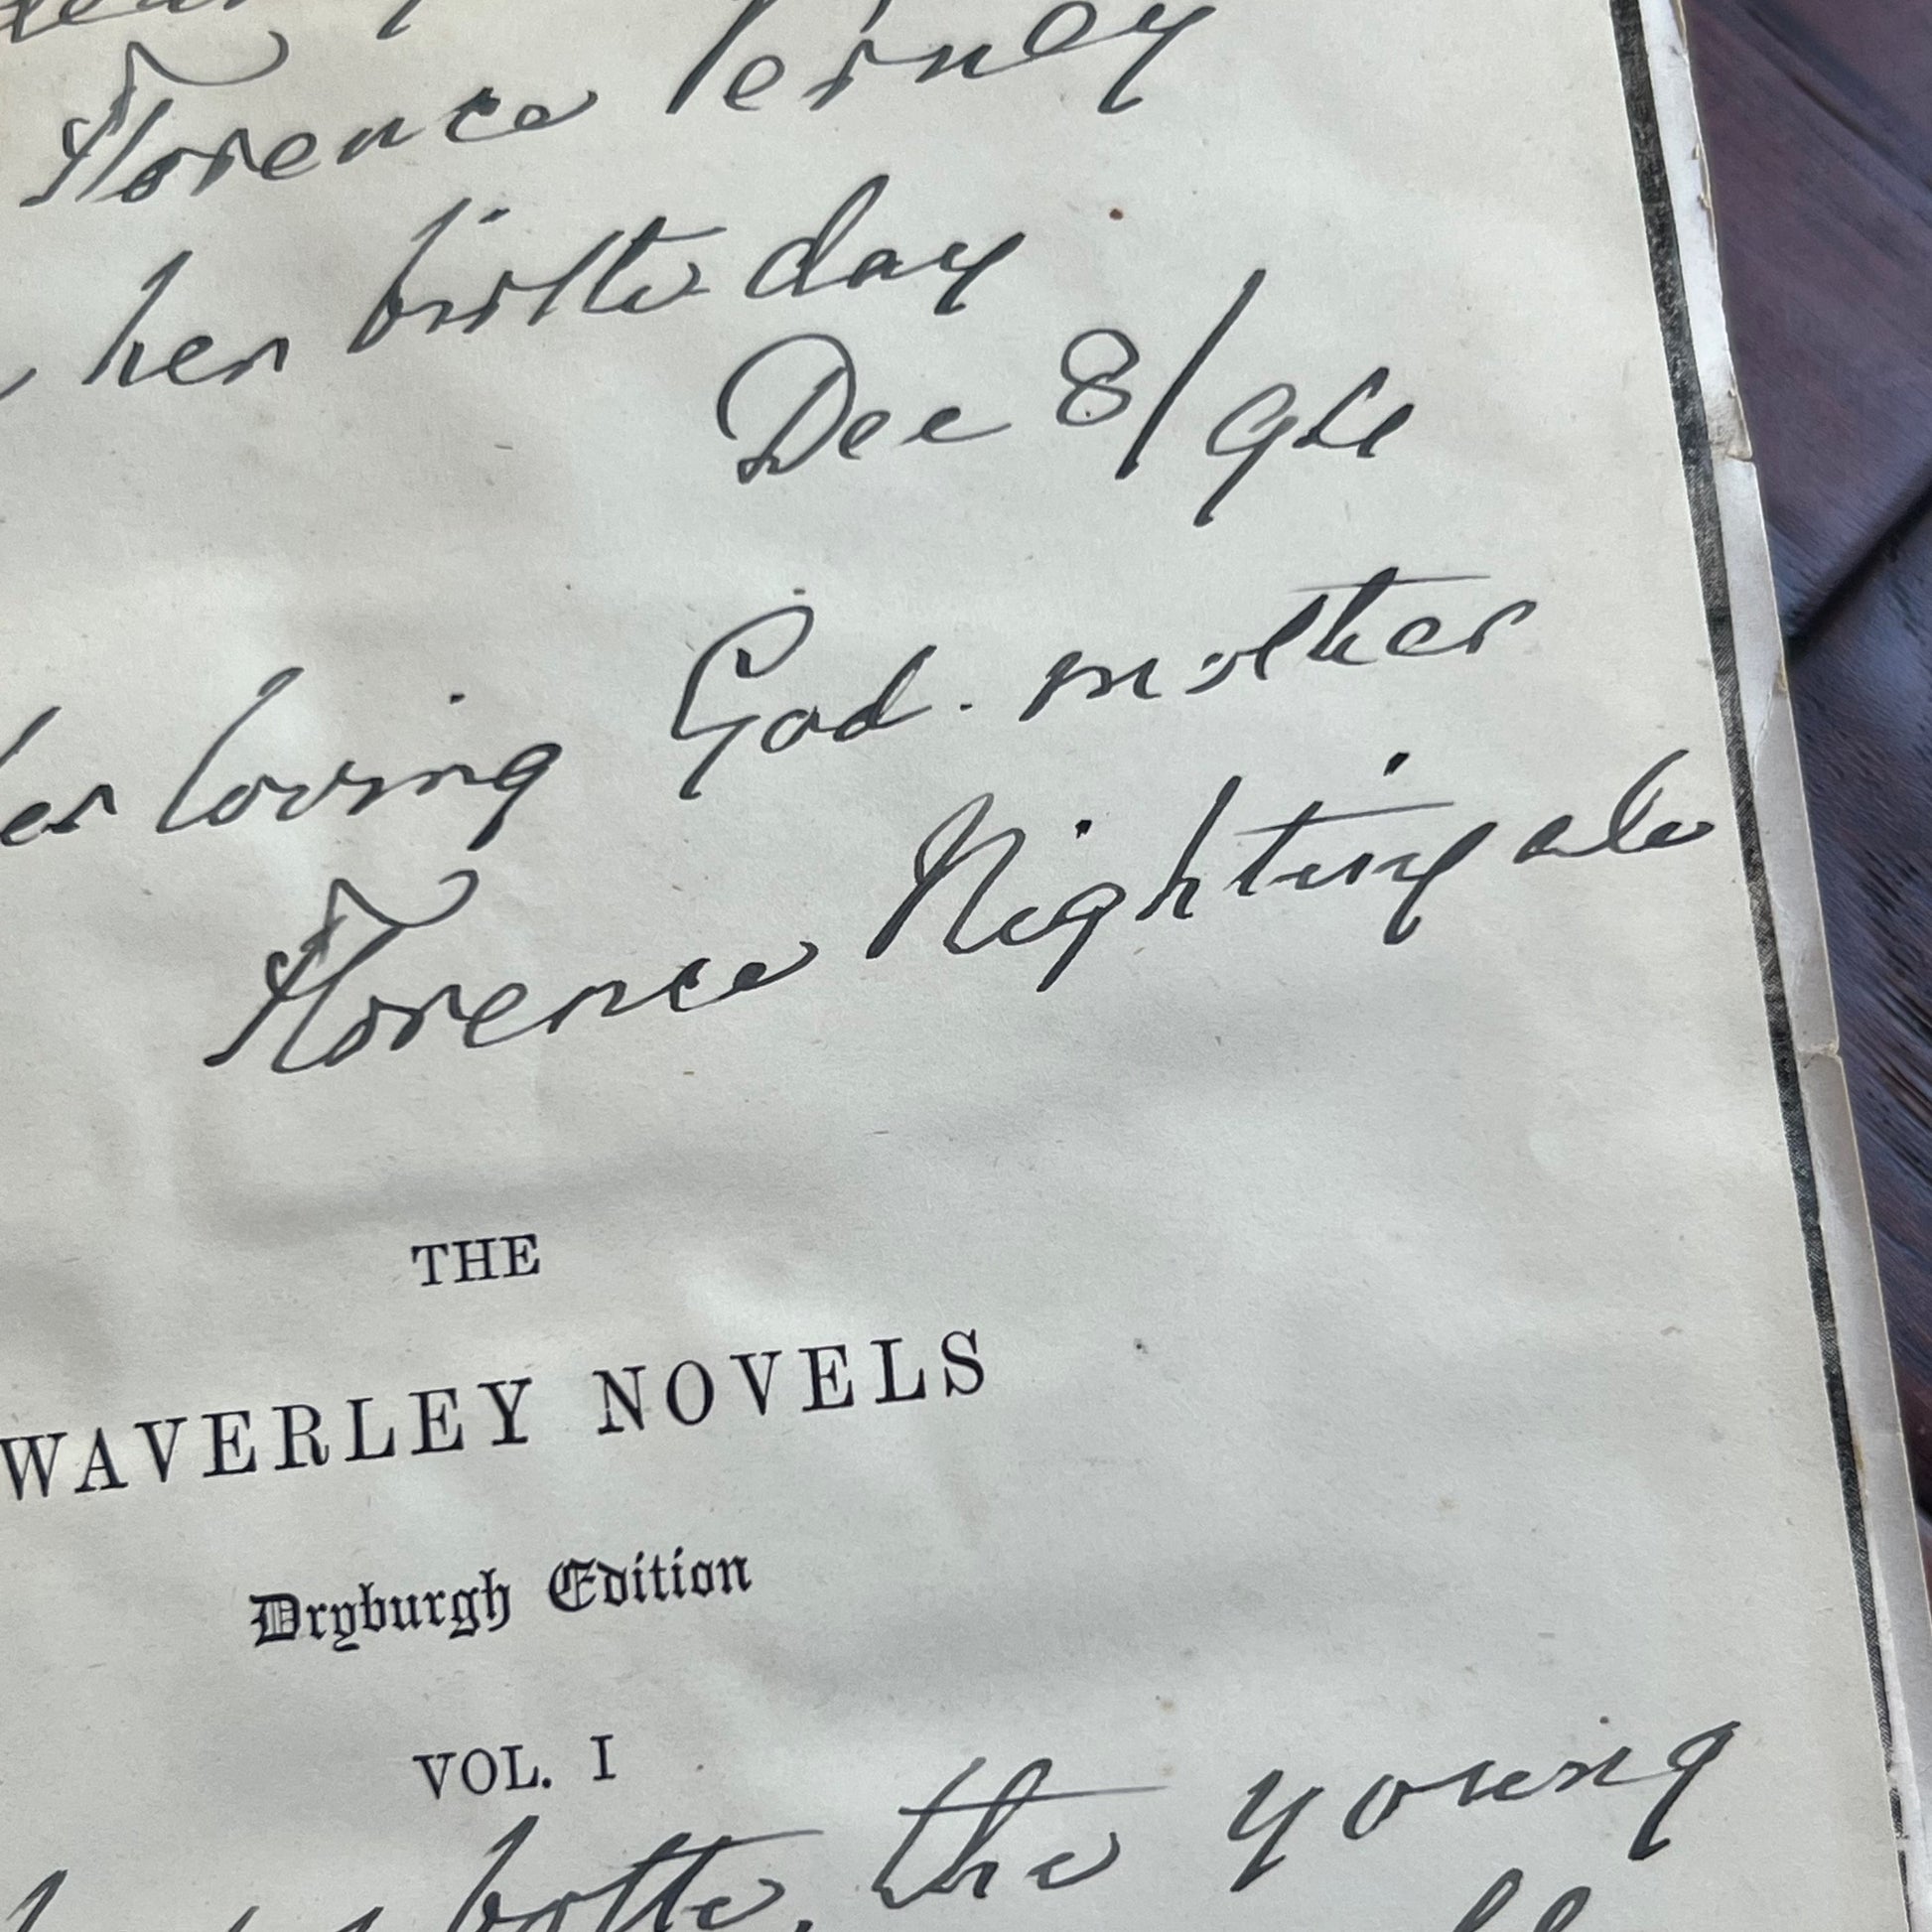 Florence Verney
her birthday
Dec 8/94
her loving God-mother
Florence Nightingale
THE
WAVERLEY NOVELS
Dryburgh Edition
VOL. I
the young